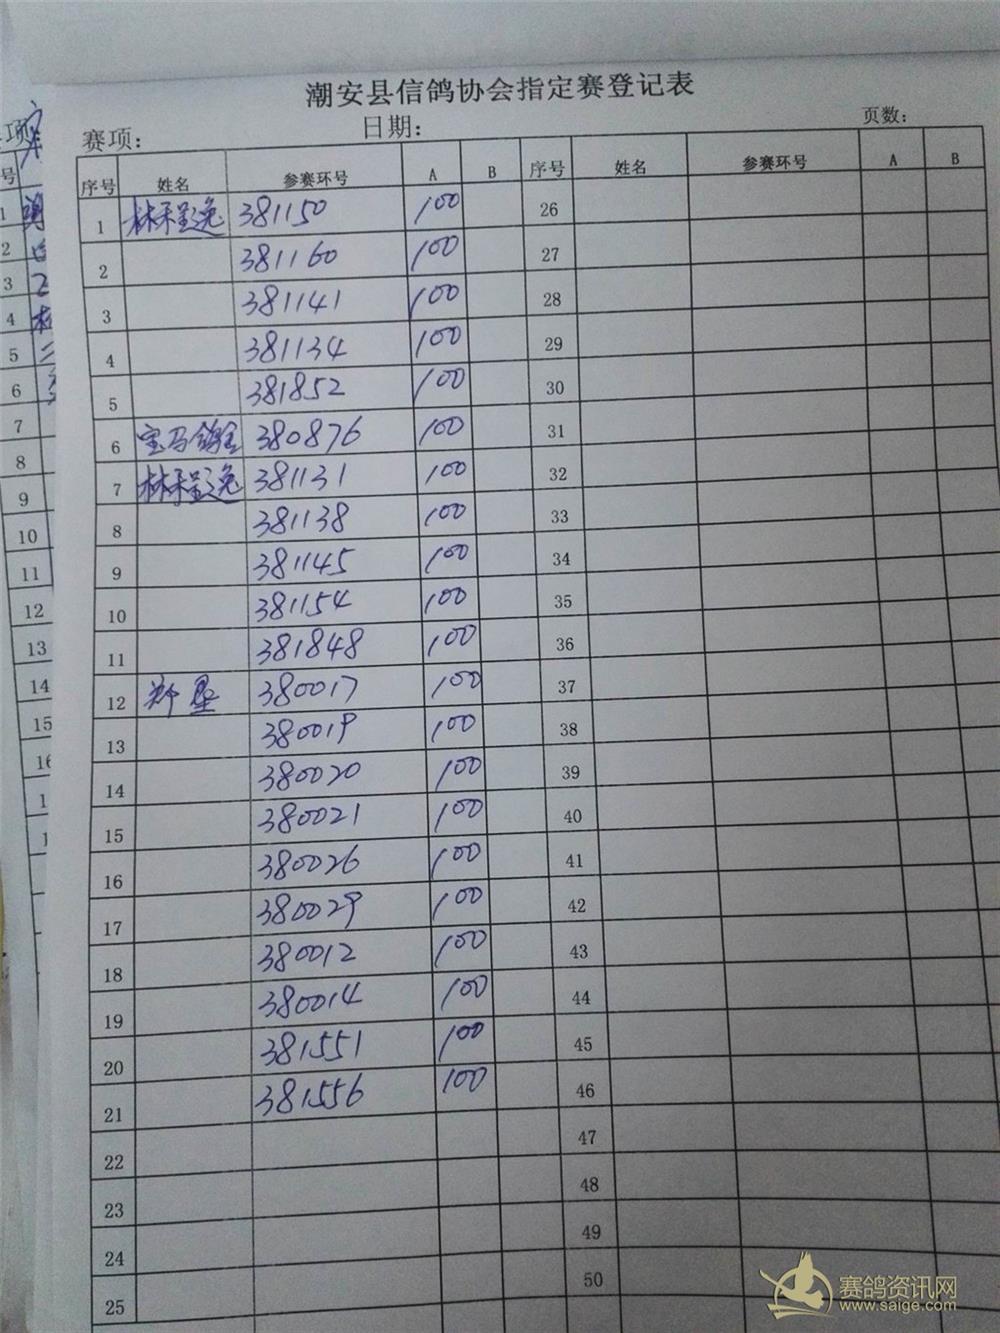 潮安县信鸽协会指定赛登记表
赛项： 日期： 页数：
序号 姓名 参赛环号 A B 序号 姓名 参赛环号 A B
1 381150 100 26
2 381160 100 27
3 381141 100 28
4 381134 100 29
5 381852 100 30
6 宝马 380876 100 31
7 381131 100 32
8 381138 100 33
9 381145 100 34
10 381154 100 35
11 381848 100 36
12 380017 100 37
13 380019 100 38
14 380020 100 39
15 380021 100 40
16 380026 100 41
17 380029 100 42
18 380012 100 43
19 380014 100 44
20 381551 100 45
21 381556 100 46
22 47
23 48
24 49
25 50
赛鸽资讯网
www.saige.com